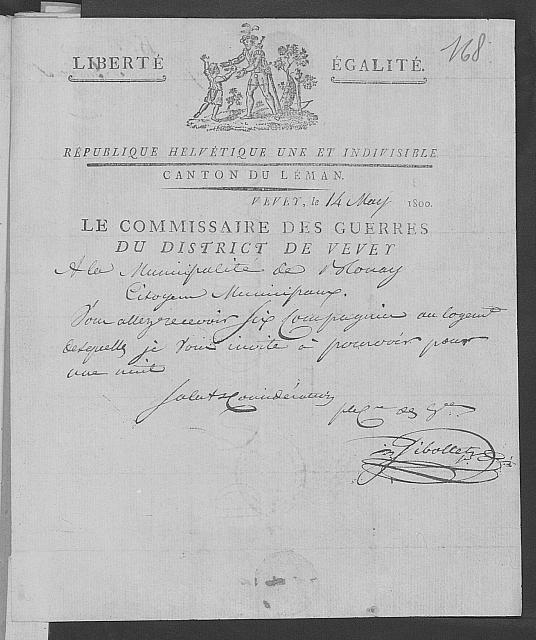 168
LIBERTÉ ÉGALITÉ.
RÉPUBLIQUE HELVÉTIQUE UNE ET INDIVISIBLE
CANTON DU LÉMAN.
VEVEY, le 14 May 1800.
LE COMMISSAIRE DES GUERRES
DU DISTRICT DE VEVEY
A la Municipalité de Blonay
Citoyens Municipaux.
Vous allez recevoir six Compagnies au logemt
desquelles je vous invite à pourvoir pour
une nuit
Salut & Considération
le Cre des Gres
Dibollet